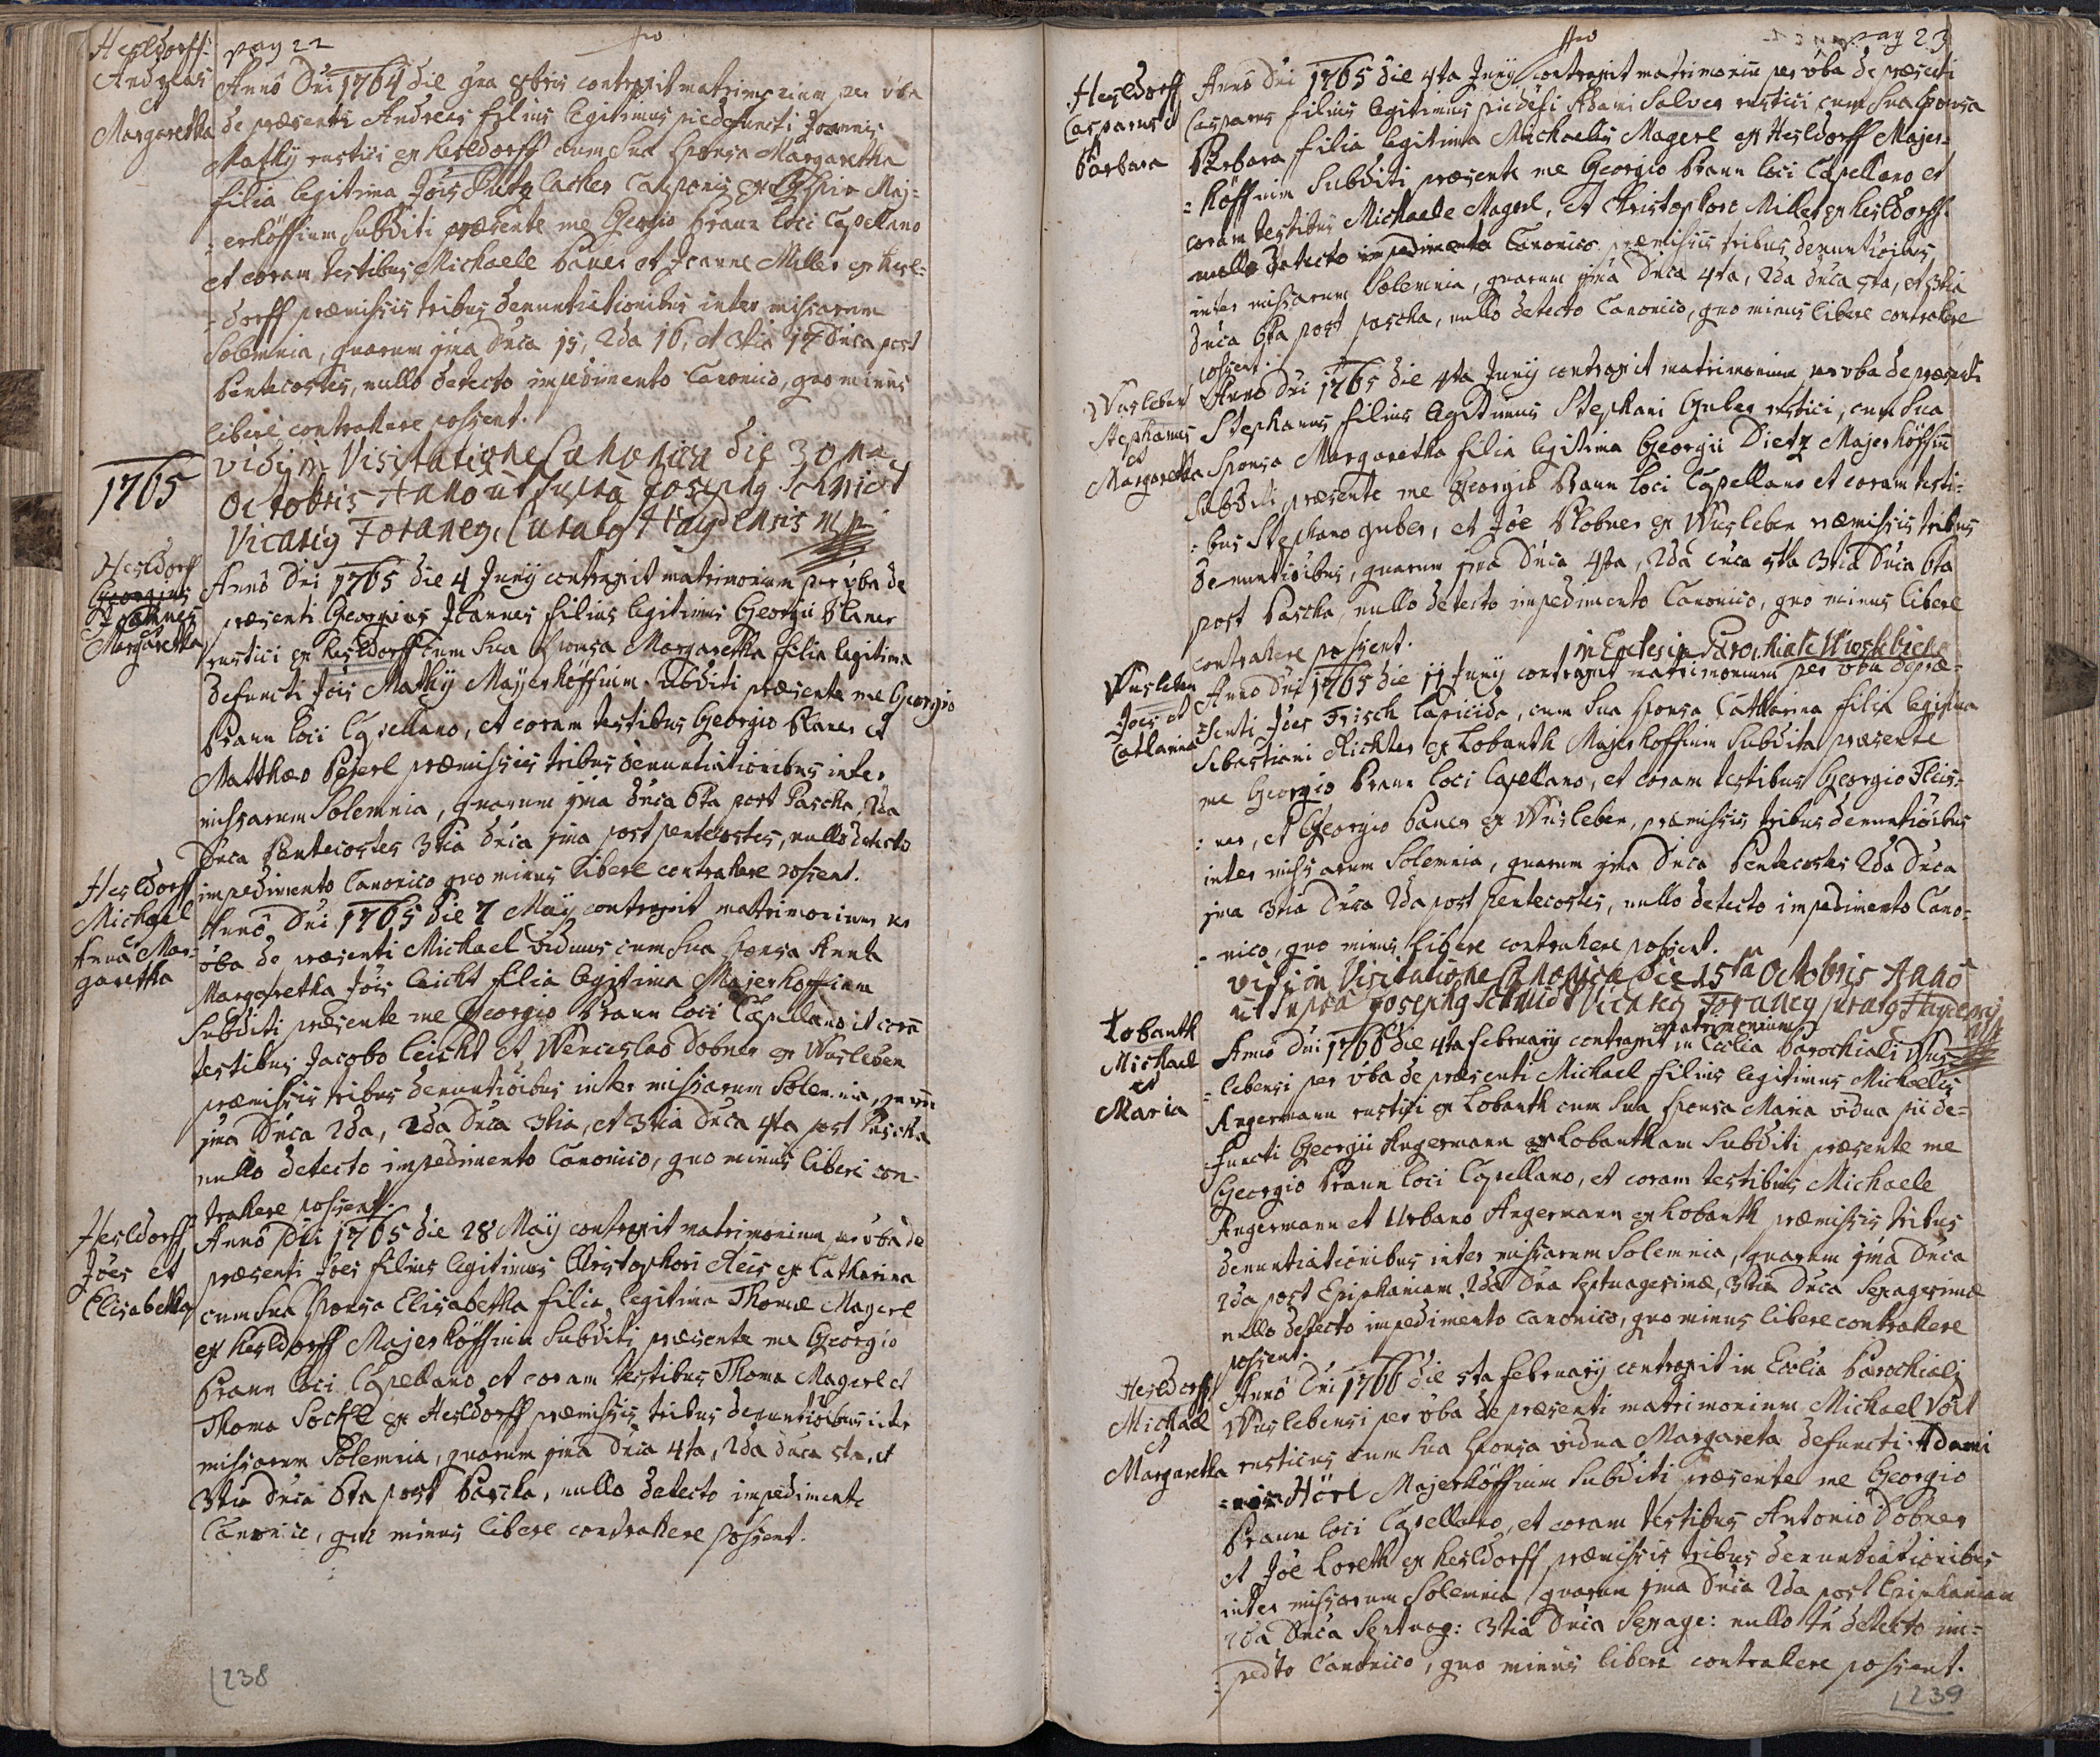 pag 22
Hesldorff:
Andreas
Margaretha
Anno Dni 1764 die 9na 8bris contraxit matrimonium per vba
de præsenti Andreas filius legitimus pie defuncti Joannis
Mathÿ rustici ex Hesldorff cum sua sponsa Margaretha
filia legitima Jois Cauponis ex Maj=
=erhöffium subditi præsente me Georgio Braun loci Capellano
et coram testibus Michaele Bauer et Joanne Miller ex Hesl=
=dorff præmissis tribus denuntiationibus inter missarum
Solemnia, quarum 1ma Dnca 15, 2da 16, et 3tia 17 Dnca post
Pentecostes, nullo detecto impedimento Canonico, quo minus
libere contrahere possent.
vidi in Visitatione Canonica die 30ma
Octobris Anno ut supra Josephg Schmidt
Vicarig Foraneg, Curatg Haydensis mp
1765
Hesldorff
Georgius
Joannes
Margaretha
Anno Dni 1765 die 4 Junÿ contraxit matrimonium per vba de
præsenti Georgius Joannes filius legitimus Georgii Planer
rustici ex Hesldorff cum sua sponsa Margaretha filia legitima
defuncti Jois Mathÿ Mayerhöffium subditi præsente me Georgio
Braun loci Capellano, et coram testibus Georgio Planer et
Matthæo Peierl præmissis tribus denuntiationibus inter
missarum Solemnia, quarum 1ma Dnca 6ta post Pascha, 2da
Dnca Pentecostes 3tia Dnca 1ma post pentecostes, nullo detecto
impedimento Canonico quo minus libere contrahere possent.
Hesldorff
Michael
Anna Mar=
garetha
Anno Dni 1765 die 7 Maÿ contraxit matrimonium per
vba de præsenti Michael viduus cum sua sponsa Anna
Margaretha Jois Leicht filia legitima Majerhoffium
subditi præsente me Georgio Braun loci Capellano et corā
testibus Jacobo Leicht et Wenceslao Dobner ex Wusleben
præmissis tribus denuntioibus inter missarum Solemnia,
1ma Dnca 2da, 2da Dnca 3tia, et 3tia Dnca 4ta post Pascha
nullo detecto impedimento Canonico, quo minus liberi con-
trahere possent.
Hesldorff
Joes et
Elisabetha
Anno Dni 1765 die 28 Maÿ contraxit matrimonium per vba de
præsenti Joes filius legitimus Christophori Reis ex Catharina
cum sua sponsa Elisabetha filia legitima Thomæ Magerl
ex Hesldorff Majerhöffium subditi præsente me Georgio
Braun loci Capellano et coram testibus Thoma Magerl et
Thoma Sockl ex Hesldorff præmissis tribus denuntioibus inter
missarum Solemnia, quarum 1ma Dnca 4ta, 2da dnca 5ta, et
3tia Dnca 6ta post Pascha, nullo detecto impedimento
Canonico, quo minus libere contrahere possent.
238
pag 23
Hesldorff
Casparus
et
Barbara
Anno Dni 1765 die 4ta Junÿ contraxit matrimoniū per vba de præsenti
Casparus filius legitimus pie defti Adami Salver rustici cum sua sponsa
Barbara filia legitima Michaelis Magerl ex Hesldorff Majer=
=höffium subditi præsente me Georgio Braun loci Capellano et
coram testibus Michaele Magerl, et Christophoro Miller ex Hesldorff
nullo detecto impedimento Canonico præmissis tribus denuntioibus
inter missarum Solemnia, quarum 1ma Dnca 4ta, 2da dnca 5ta, et 3tia
Dnca 6ta post pascha, nullo detecto Canonico, quo minus libere contrahere
possent.
Wusleben
Stephanus
et
Margaretha
Anno Dni 1765 die 4ta Junÿ contraxit matrimonium per vba de præsenti
Stephanus filius legitimus Stephani Guber rustici, cum sua
sponsa Margaretha filia legitima Georgii Dietz Majerhöffiū
subditi præsente me Georgio Braun loci Capellano et coram testi=
=bus Stephano Guber, et Joe Dobner ex Wusleben præmissis tribus
denuntioibus, quarum 1ma Dnca 4ta, 2da Dnca 5ta 3tia Dnca 6ta
post Pascha, nullo detecto impedimento Canonico, quo minus libere
contrahere possent.
in Eclesia Parochiali Wuslebiensi
Wusleben
Joes et
Catharina
Anno Dni 1765 die 11 Junÿ contraxit matrimonium per vba de præ=
=senti Joes Frisch Lapicida, cum sua sponsa Catharina filia legitima
Sebastiani Richter ex Lobanth Majerhoffium subdita præsente
me Georgio Braun loci Capellano, et coram testibus Georgio Fleis=
=ner, et Georgio Bauer ex Wusleben, præmissis tribus denuntioibus
inter missarum Solemnia, quarum 1ma Dnca Pentecostes 2da Dnca
1ma 3tia Dnca 2da post pentecostes, nullo detecto impedimento Cano=
=nico, quo minus libere contrahere possent.
vidi in Visitatione Canonica die 15ta Octobris Anno
ut supra Josephg Schmidt Vicarig Foraneg Curatg Haydensis
mp
Lobanth
Michael
et
Maria
Anno Dni 1766 die 4ta februarÿ contraxit matrimonium in Ecclia Parochiali Wus=
=lebensi per vba de præsenti Michael filius legitimus Michaelis
Angermann rustici ex Lobanth cum sua sponsa Maria vidua pii de=
=functi Georgii Angermann ex Lobantham subditi præsente me
Georgio Braun loci Capellano, et coram testibus Michaele
Angermann et Urbano Angermann ex Lobanth præmissis tribus
denuntiationibus inter missarum Solemnia, quarum 1ma Dnca
2da post Epiphaniam, 2da Dna Septuagesimæ, 3tia Dnca Sexagesimæ
nullo detecto impedimento canonico, quo minus libere contrahere
possent.
Hesldorff
Michael
et
Margaretha
Anno Dni 1766 die 5ta februarÿ contraxit in Ecclia Parochiali
Wuslebensi per vba de præsenti matrimonium Michael Voit
rusticus cum sua sponsa vidua Margareta defuncti Adami
Hörl Majerhöffium subditi præsente me Georgio
Braun loci Capellano, et coram testibus Antonio Dobner
et Joe Loreth ex Hesldorff præmissis tribus denuntiationibus
inter missarum Solemnia quarum 1ma Dnca 2da post Epiphaniam
2da Dnca Septuag: 3tia Dnca Sexage: nullo detecto im=
=pedto Canonico, quo minus libere contrahere possent.
239